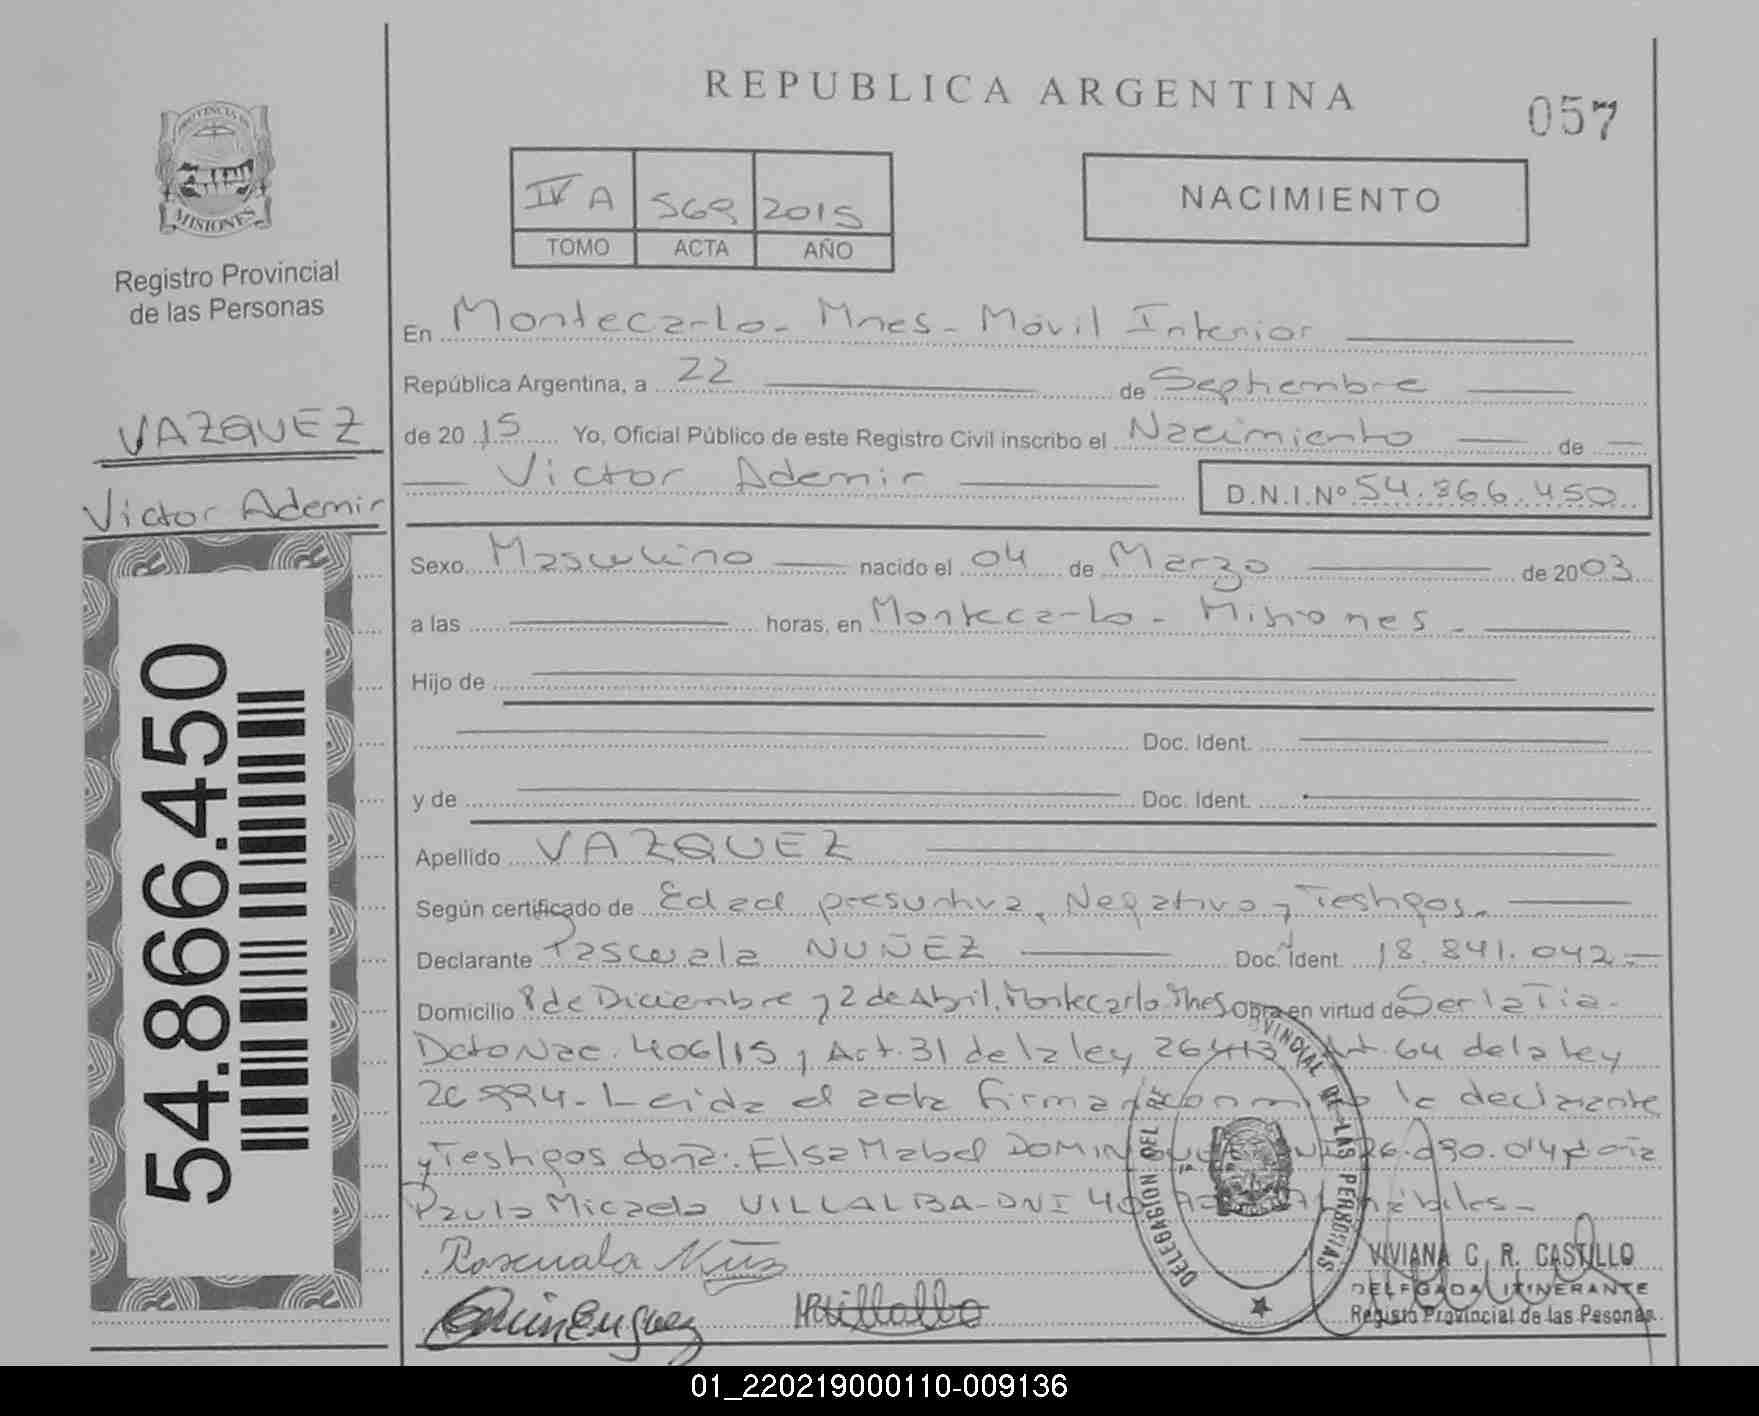 REPUBLICA ARGENTINA
057
PROVINCIA DE
MISIONES
Registro Provincial
de las Personas
IV A 569 2015
TOMO ACTA AÑO
NACIMIENTO
VAZQUEZ
Victor Ademir
54.866.450
En Montecarlo - Mnes - Móvil Interior
República Argentina, a 22 de Septiembre
de 2015 Yo, Oficial Público de este Registro Civil inscribo el Nacimiento de
Victor Ademir D.N.I.Nº 54.866.450
Sexo Masculino nacido el 04 de Marzo de 2003
a las horas, en Montecarlo - Misiones -
Hijo de
Doc. Ident.
y de Doc. Ident.
Apellido VAZQUEZ
Según certificado de Edad presuntiva, Negativo y Testigos.
Declarante Pascuala NUÑEZ Doc. Ident. 18.841.042
Domicilio 8 de Diciembre y 2 de Abril, Montecarlo, Mnes Obra en virtud de Ser la Tia.
Dcto Nac. 406/15, Art. 31 de la ley 26413 Art. 64 de la ley
26994 - Leida el acta firman conmigo la declarante
y Testigos doña: Elsa Mabel DOMINGUEZ DNI 26. 014 y doña
Paula Micaela VILLALBA - DNI 40 hábiles -
Pascuala
Villalba
DELEGACION DEL PROVINCIAL DE LAS PERSONAS
VIVIANA C. R. CASTILLO
DELEGADA ITINERANTE
Registro Provincial de las Pesonas
01_220219000110-009136